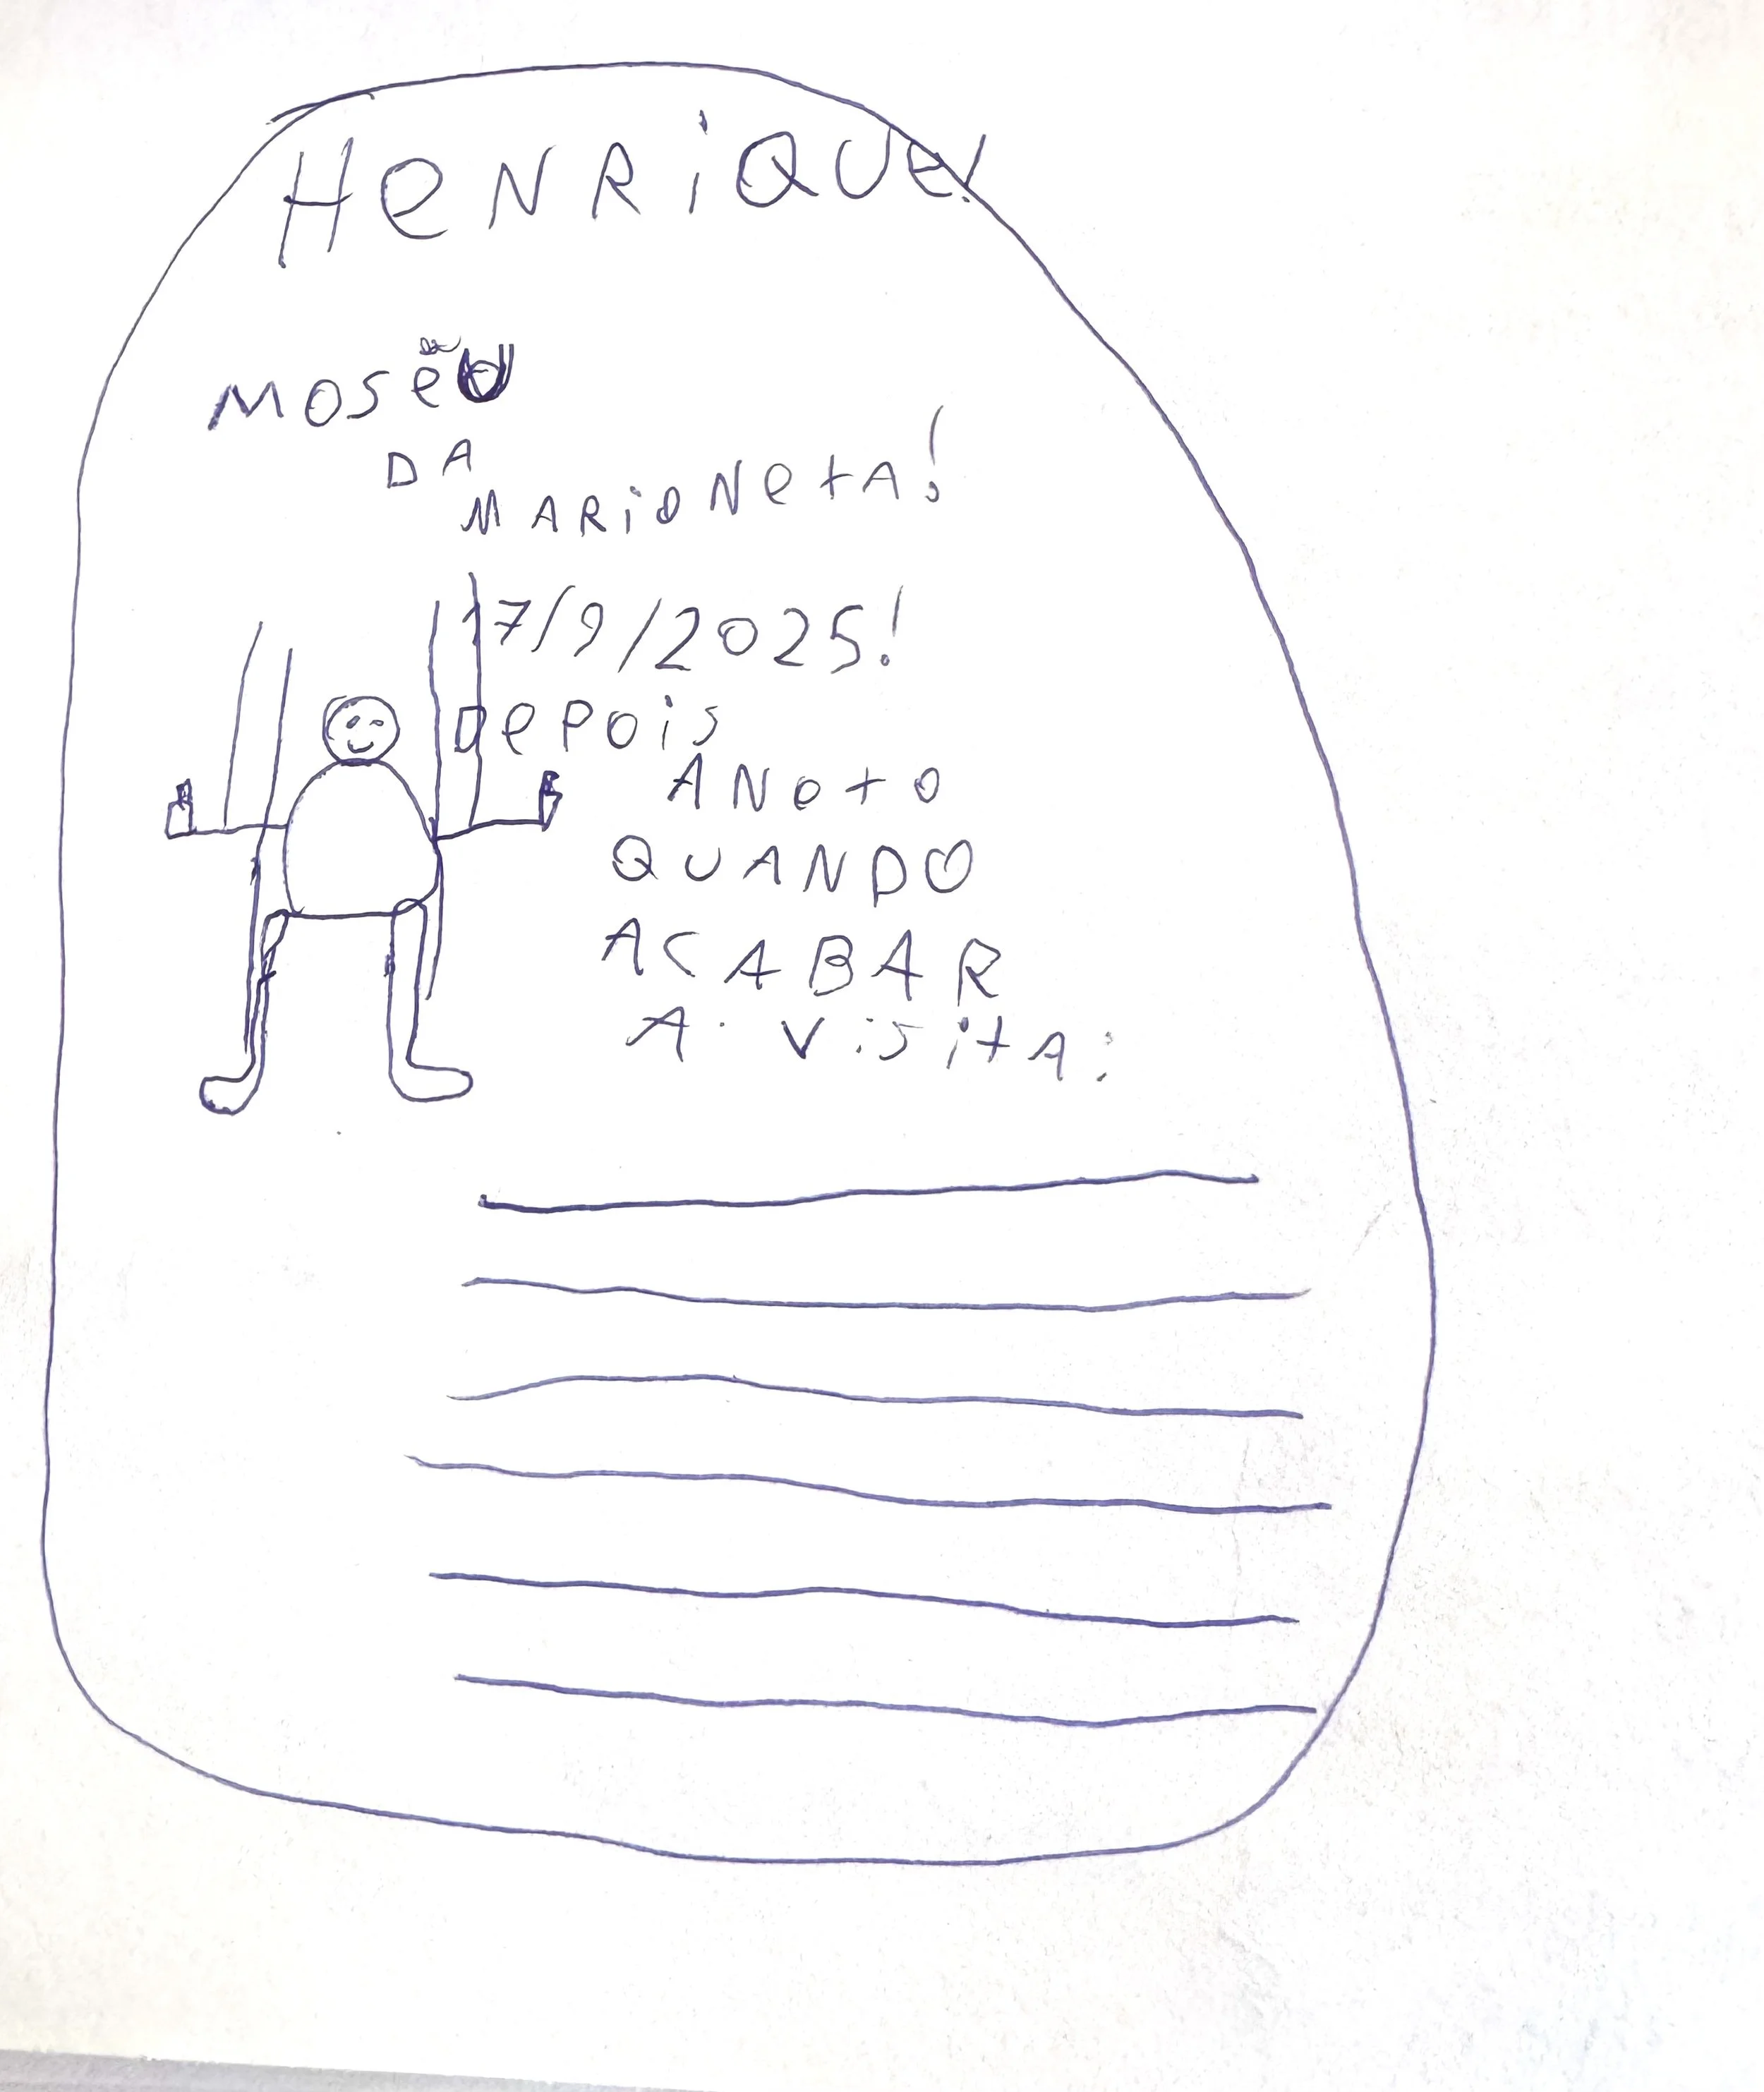 HeNRiQUe!
MOSeU
DA
MARiONetA!
17/9/2025!
DePOiS
ANOtO
QUANDO
ACABAR
A. ViSitA: